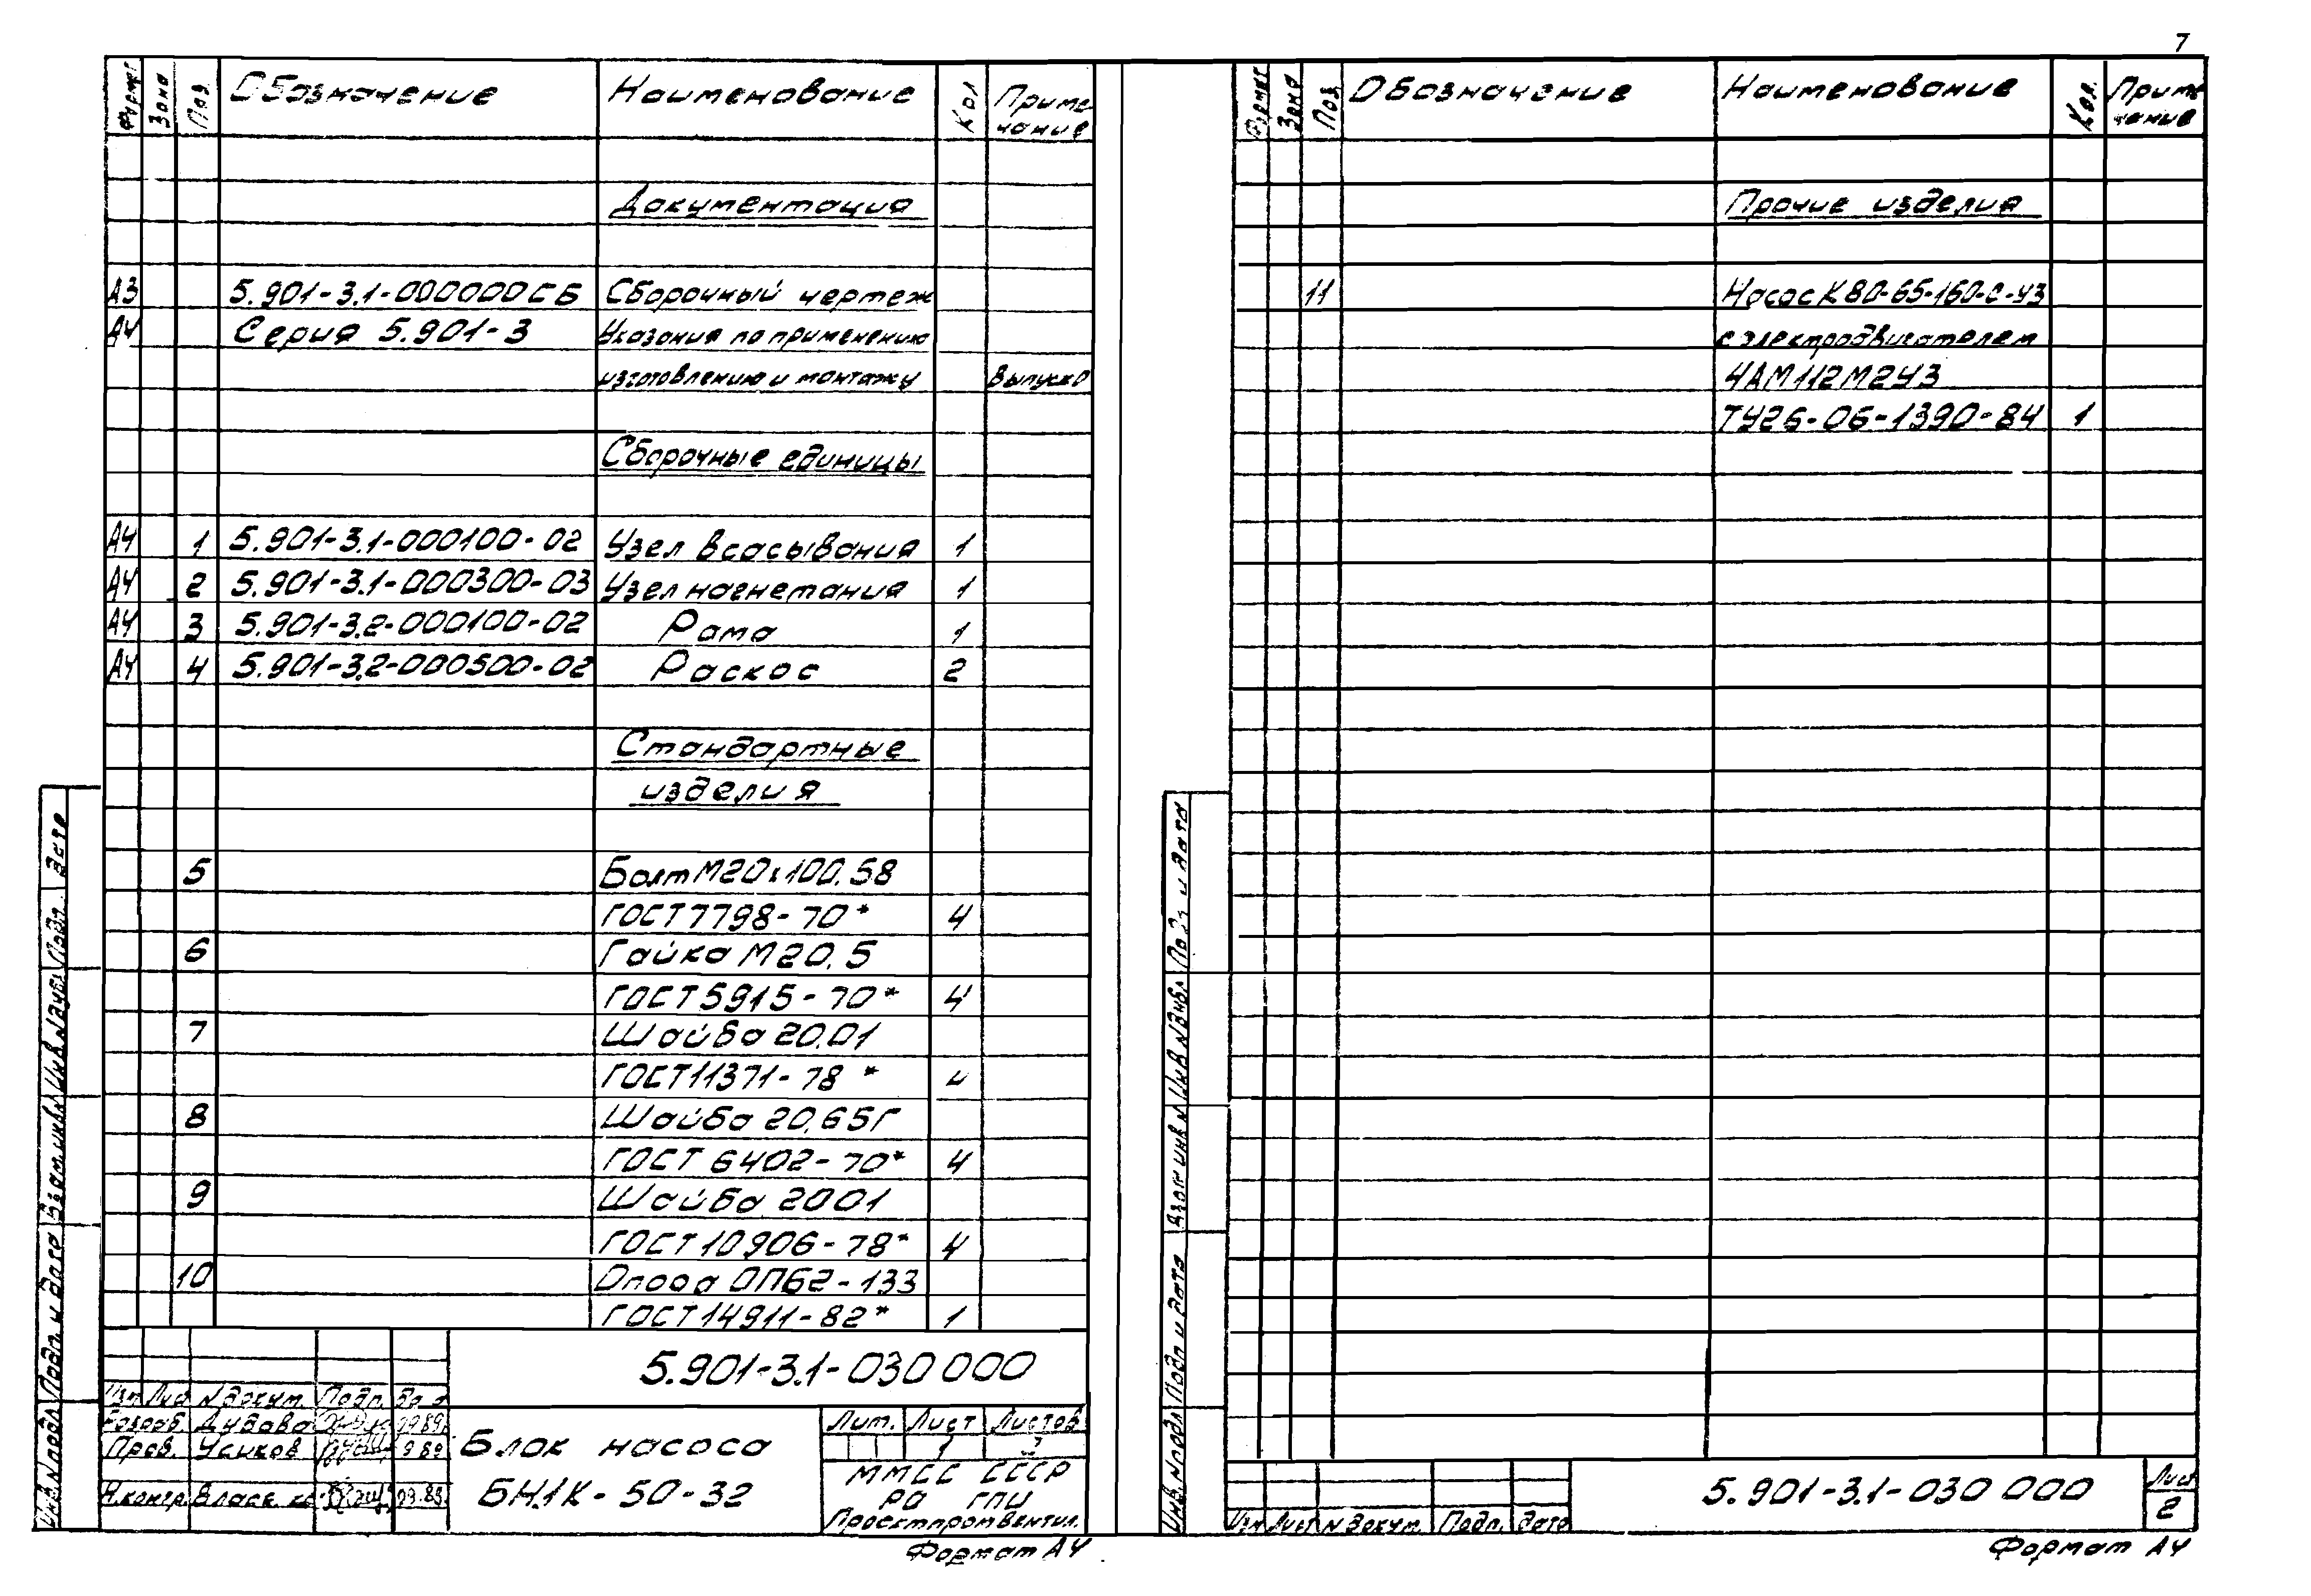 7
Формат Зона Поз. Обозначение Наименование Кол Приме-
чание
Документация
А3 5.901-3.1-000000СБ Сборочный чертеж
А4 Серия 5.901-3 Указания по применению
изготовлению и монтажу Выпуск 0
Сборочные единицы
А4 1 5.901-3.1-000100-02 Узел всасывания 1
А4 2 5.901-3.1-000300-03 Узел нагнетания 1
А4 3 5.901-3.2-000100-02 Рама 1
А4 4 5.901-3.2-000500-02 Раскос 2
Стандартные
изделия
5 Болт М20х100.58
ГОСТ 7798-70* 4
6 Гайка М20.5
ГОСТ 5915-70* 4
7 Шайба 20.01
ГОСТ 11371-78* 4
8 Шайба 20.65Г
ГОСТ 6402-70* 4
9 Шайба 2001
ГОСТ 10906-78* 4
10 Опора ОПБ2-133
ГОСТ 14911-82* 1
5.901-3.1-030 000
Изм Лист N докум. Подп.
Разраб. Дудова 09.89.
Пров. Усиков 9 89.
Н.контр. 09.89.
Блок насоса
БН.1К-50-32
Лит. Лист Листов
1 2
ММСС СССР
РО ГПИ
Проектпромвентил.
Формат А4
Инв. N подл Подп. и дата Взам. инв. N Инв. N дубл Подп. дата
Формат Зона Поз. Обозначение Наименование Кол. Приме
чание
Прочие изделия
11 Насос К 80-65-160-С-У3
с электродвигателем
4АМ112М2У3
ТУ26-06-1390-84 1
5.901-3.1-030 000
Лист
2
Изм Лист N докум. Подп. Дата
Формат А4
Инв. N подл Подп и дата Взам инв N Инв N дубл Подп и дата